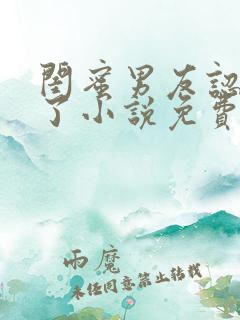 閨蜜男友認
了小說免費
雨魔
未经同意禁止转载